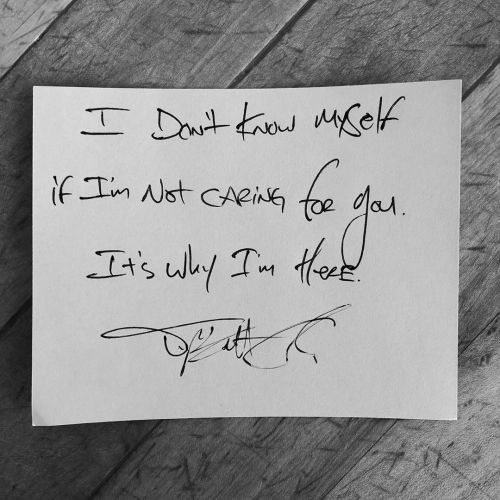 I Don't Know Myself
if I'm Not CARiNG for you.
It's why I'm HeRE.